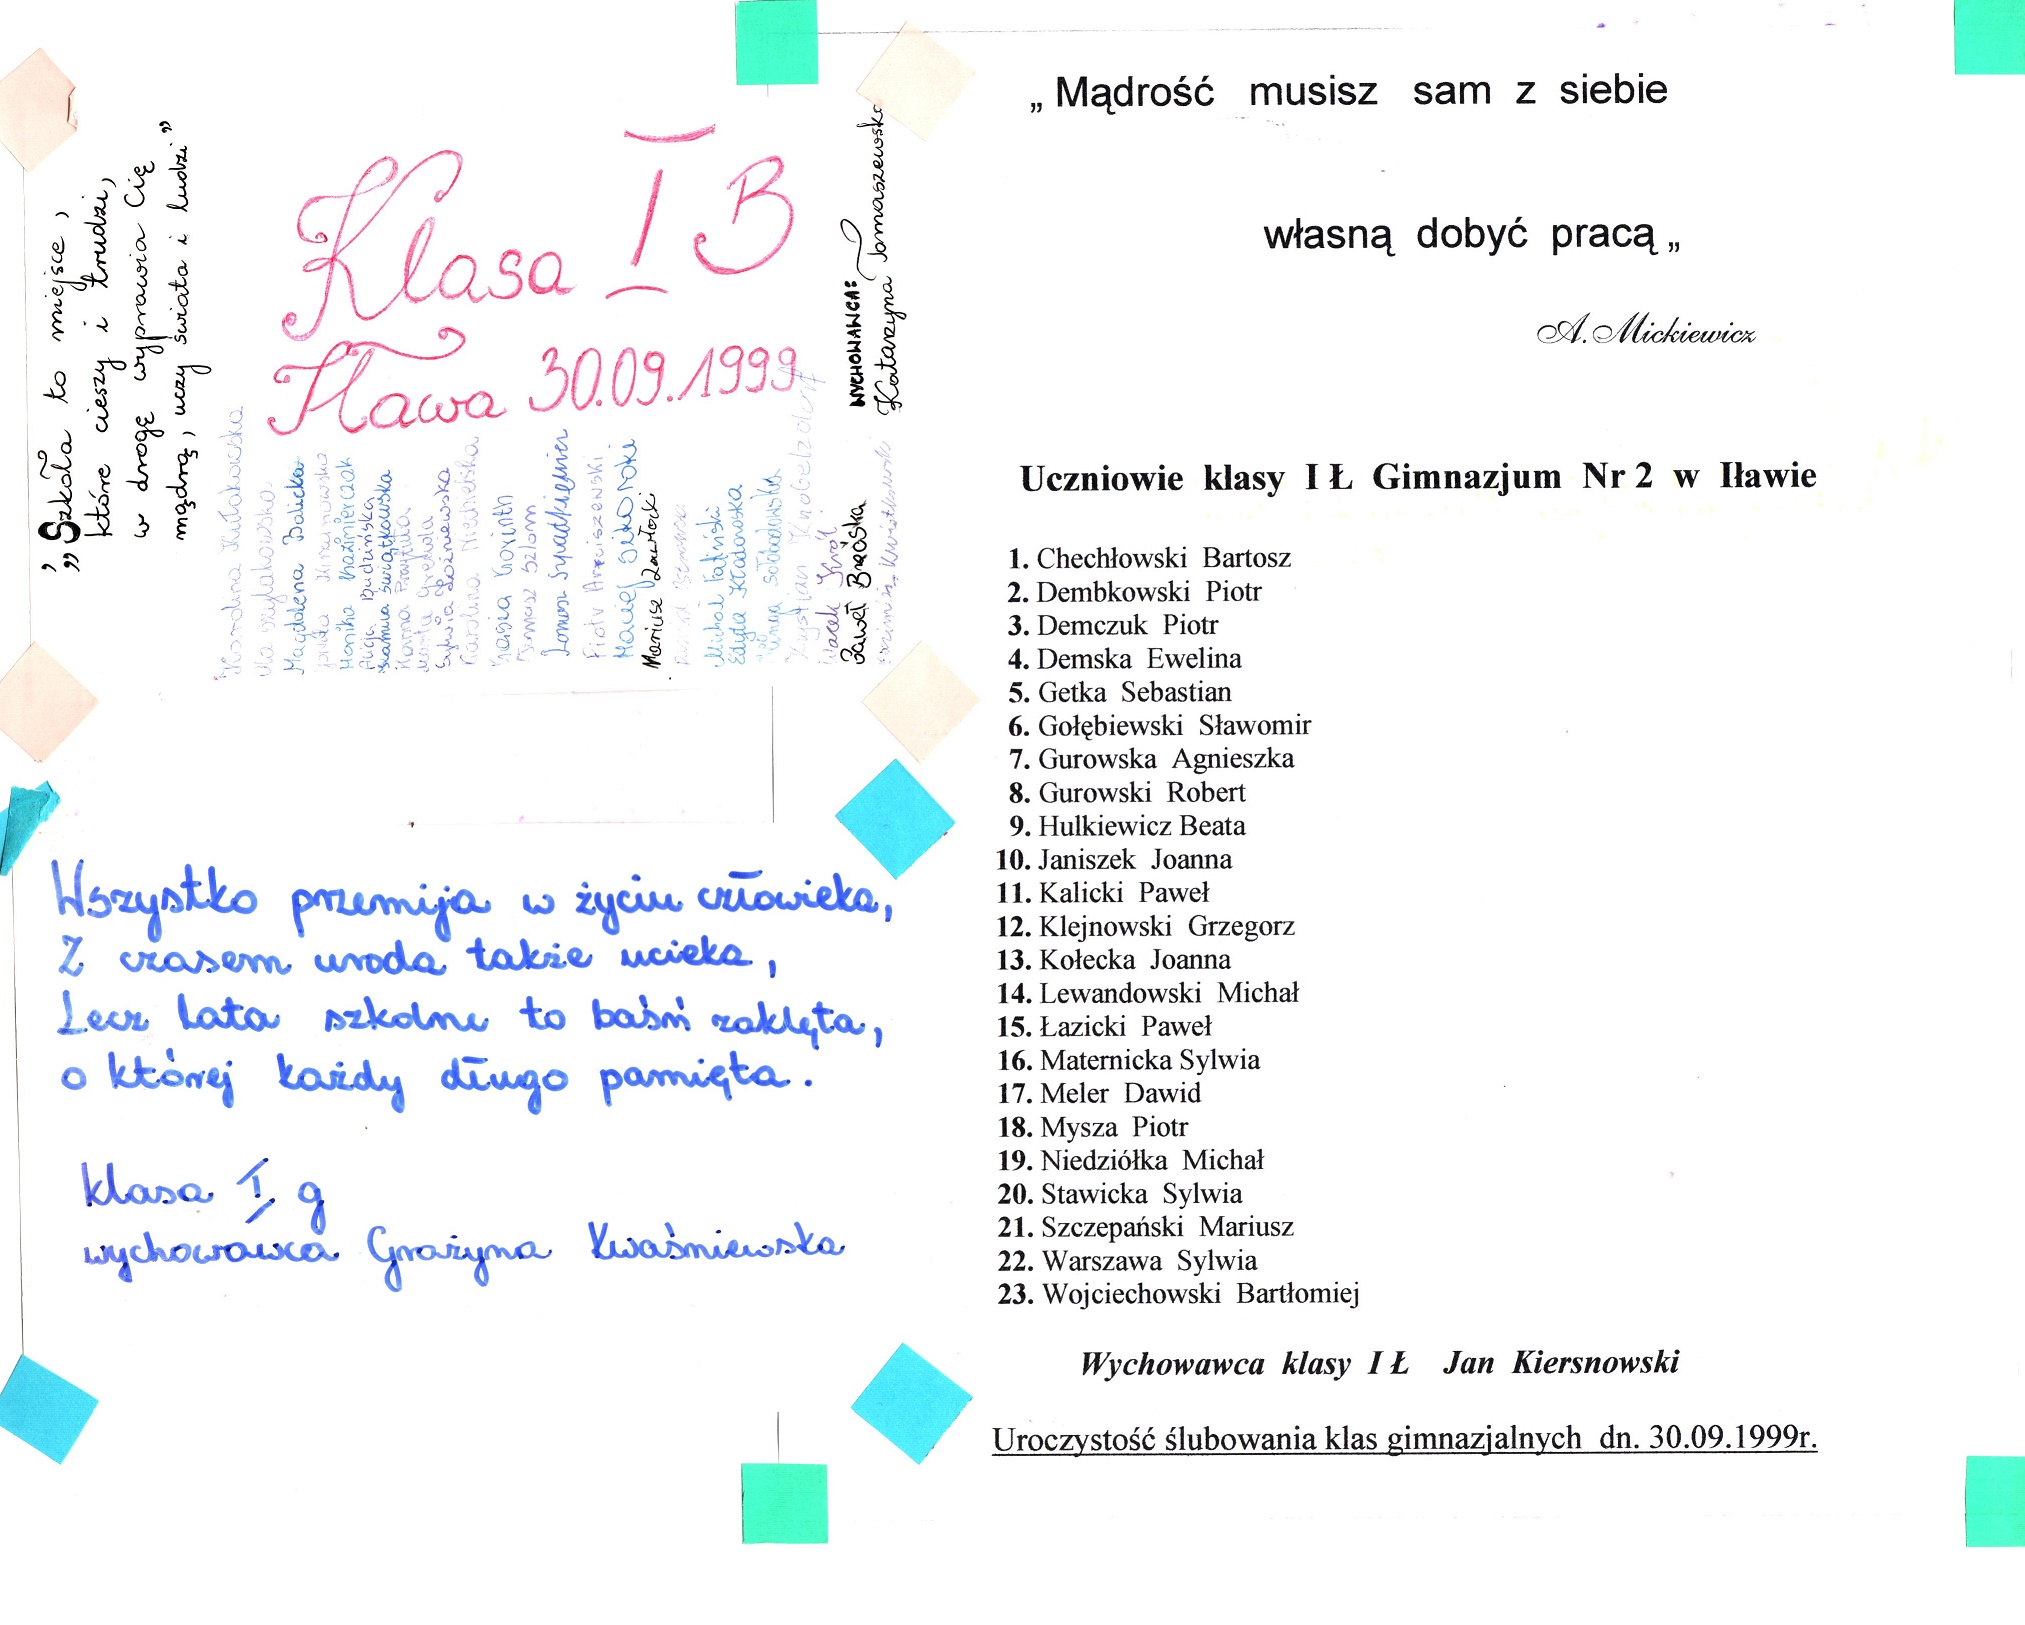 „Szkoła to miejsce,
które cieszy i trudzi,
w drogę wyprawia Cię
mądrą, uczy świata i ludzi”
Klasa I B
Iława 30.09.1999
Karolina Kułakowska
Ola
Magdalena Balicka
Monika Kaźmierczak
Alicja Budzińska
Kamila Świątkowska
Hanna Prawtuta
Marta Grekula
Sylwia Łożniewska
Karolina Niedzielska
Kasia Gorinth
Tomasz Szlom
Piotr Arciszewski
Maciej Sikorski
Mariusz Zawłocki
Michał Faliński
Edyta Kładowska
Kinga Sołobodowska
Krystian Knobelzdorf
Jacek Król
Paweł Brzóska
Kwiatkowski
WYCHOWAWCA:
Katarzyna Tomaszewska
Wszystko przemija w życiu człowieka,
Z czasem uroda także ucieka,
Lecz lata szkolne to baśń zaklęta,
o której każdy długo pamięta.
klasa I g
wychowawca Grażyna Kwaśniewska
„ Mądrość musisz sam z siebie
własną dobyć pracą „
A. Mickiewicz
Uczniowie klasy I Ł Gimnazjum Nr 2 w Iławie
1. Chechłowski Bartosz
2. Dembkowski Piotr
3. Demczuk Piotr
4. Demska Ewelina
5. Getka Sebastian
6. Gołębiewski Sławomir
7. Gurowska Agnieszka
8. Gurowski Robert
9. Hulkiewicz Beata
10. Janiszek Joanna
11. Kalicki Paweł
12. Klejnowski Grzegorz
13. Kołecka Joanna
14. Lewandowski Michał
15. Łazicki Paweł
16. Maternicka Sylwia
17. Meler Dawid
18. Mysza Piotr
19. Niedziółka Michał
20. Stawicka Sylwia
21. Szczepański Mariusz
22. Warszawa Sylwia
23. Wojciechowski Bartłomiej
Wychowawca klasy I Ł Jan Kiersnowski
Uroczystość ślubowania klas gimnazjalnych dn. 30.09.1999r.